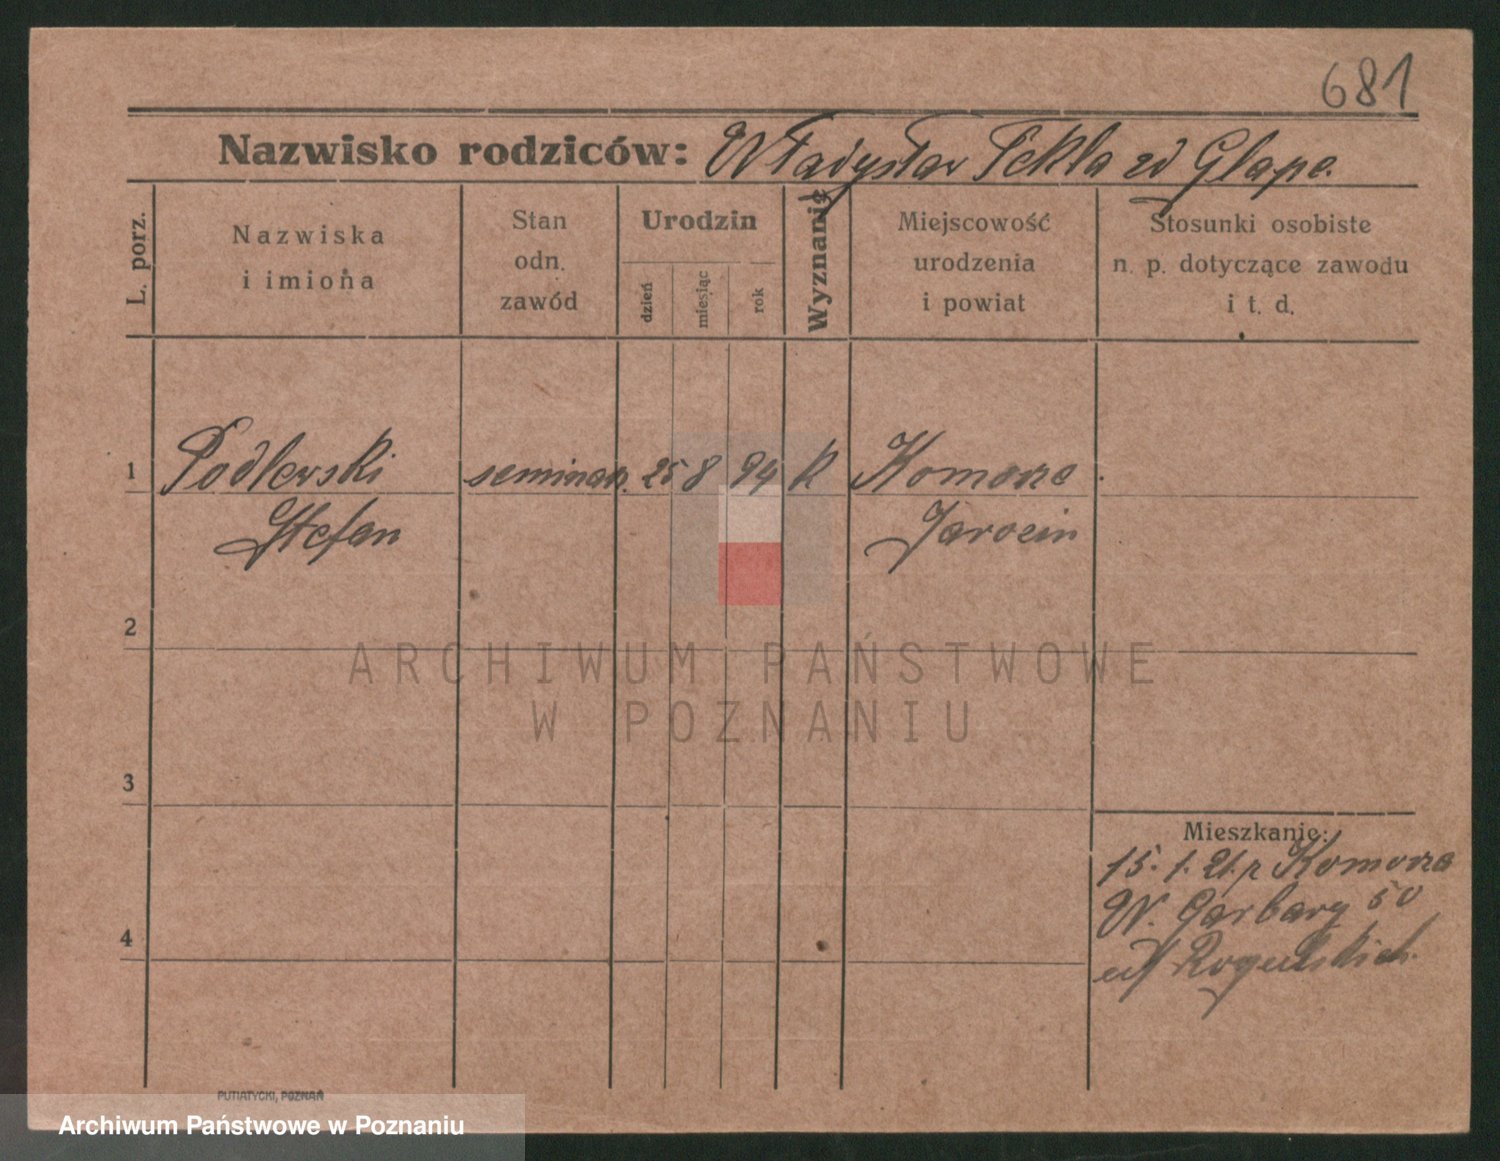 681
Nazwisko rodziców: Władysław Tekla zd Glapa.
L. porz.
Nazwiska
i imiona
Stan
odn.
zawód
Urodzin
dzień
miesiąc
rok
Wyznanie
Miejscowość
urodzenia
i powiat
Stosunki osobiste
n. p. dotyczące zawodu
i t. d.
1 Podlewski seminar. 25 8 94 k Komorze
Stefan Jarocin
2
ARCHIWUM PAŃSTWOWE
W POZNANIU
3
Mieszkanie:
15. 1. 21. z Komorze
W. Garbary 50
4
PUTIATYCKI, POZNAŃ
Archiwum Państwowe w Poznaniu